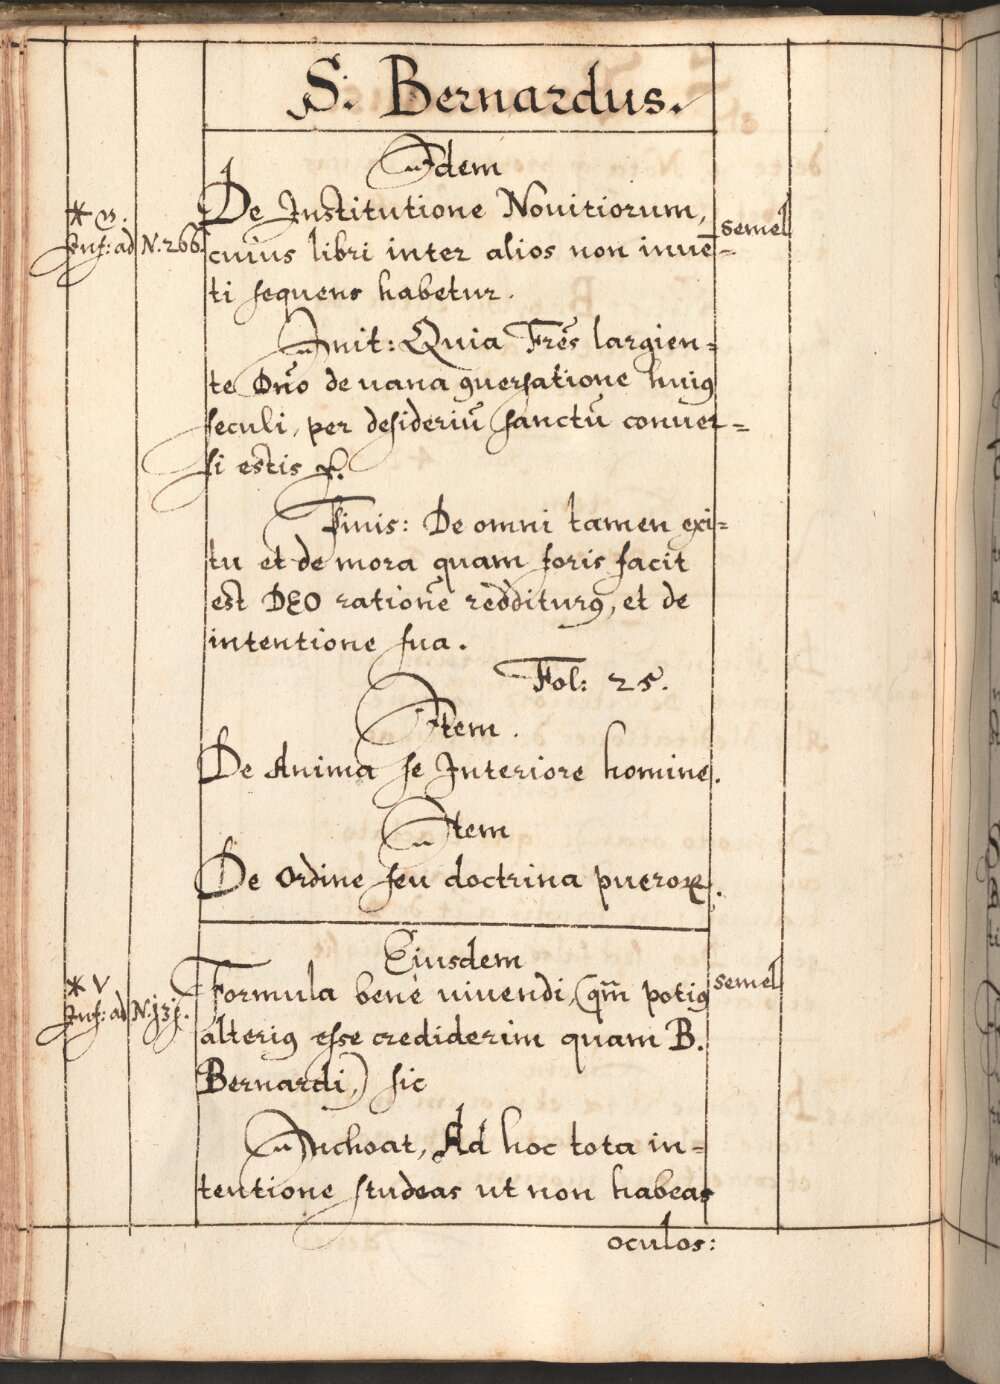 S. Bernardus.
Idem
De Institutione Nouitiorum,
* M.
semel
Inf: ad N. 266. cuius libri inter alios non inuē=
ti sequens habetur.
Init: Quia Frēs largien=
te Dño de uana ꝯuersatione huiꝰ
seculi, per desideriū sanctū conuer=
si estis
Finis: De omni tamen exi=
tu et de mora quam foris facit
est DEO rationē redditurꝰ, et de
intentione sua.
Fol: 25.
Item.
De Anima se Interiore homine.
Item
De Ordine seu doctrina pueroꝝ.
Eiusdem
* V
semel
Inf: ad Formula benè uiuendi, (qm̄ potiꝰ
alteriꝰ esse crediderim quam B.
Bernardi,) sic
Inchoat, Ad hoc tota in=
tentione studeas ut non habeas
oculos: